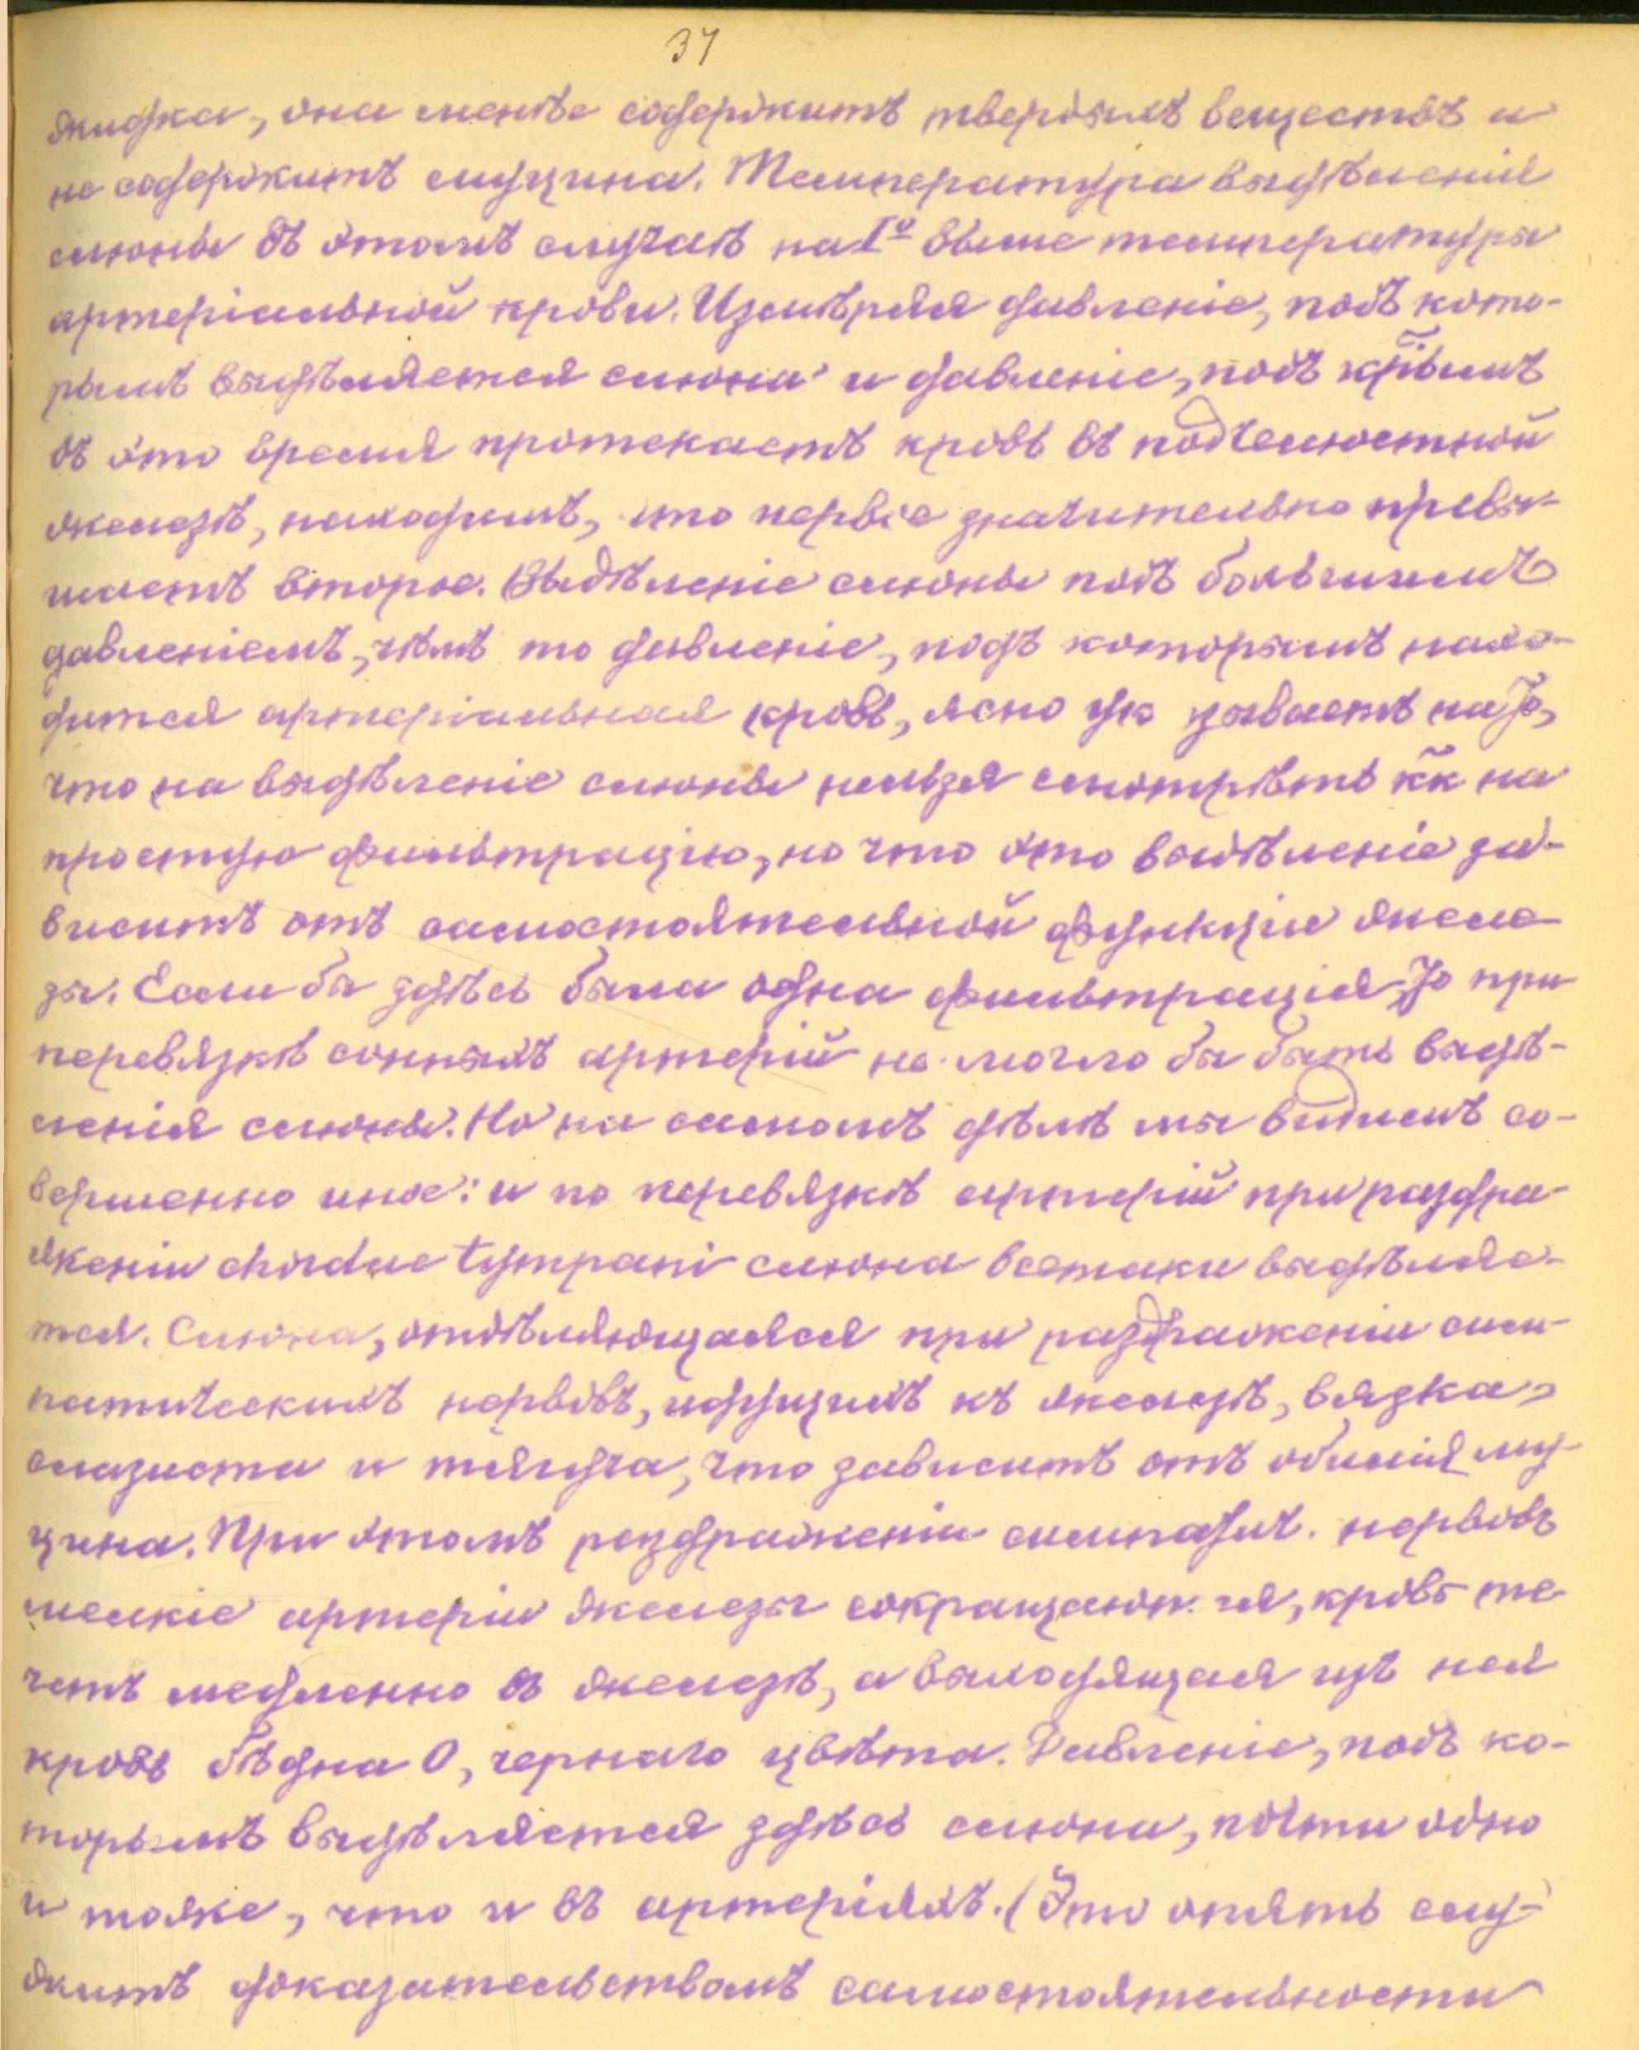 37
жидка, она менѣе содержитъ твердыхъ веществъ и
не содержитъ муцина. Температура выдѣленія
слюны въ этомъ случаѣ на 1° выше температуры
артеріальной крови. Измѣряя давленіе, подъ кото-
рымъ выдѣляется слюна и давленіе, подъ крымъ
въ это время протекаетъ кровь въ подчелюстной
железѣ, находимъ, что первое значительно превы-
шаетъ второе. Выдѣленіе слюны подъ большимъ
давленіемъ, чѣмъ то давленіе, подъ которымъ нахо-
дится артеріальная кровь, ясно ук зываетъ на то,
что на выдѣленіе слюны нельзя смотрѣть кк на
простую фильтрацію, но что это выдѣленіе за-
виситъ отъ самостоятельной функціи желе-
зы. Если бы здѣсь была одна фильтрація, то при
перевязкѣ сонныхъ артерій не могло бы быть выдѣ-
ленія слюны. Но на самомъ дѣлѣ мы видимъ со-
вершенно иное: и по перевязкѣ артерій при раздра-
женіи chordae tympani слюна всетаки выдѣляе-
тся. Слюна, отдѣляющаяся при раздраженіи сим-
патическихъ нервовъ, идущихъ къ железѣ, вязка,
слизиста и тягуча, что зависитъ отъ обилія му-
цина. При этомъ раздраженіи симпатич. нервовъ
мелкіе артеріи железы сокращаются, кровь те-
четъ медленно въ железѣ, а выходящая изъ нея
кровь бѣдна О, чернаго цвѣта. Давленіе, подъ ко-
торымъ выдѣляется здѣсь слюна, почти одно
и тоже, что и въ артеріяхъ. (Это опять слу-
житъ доказательствомъ самостоятельности